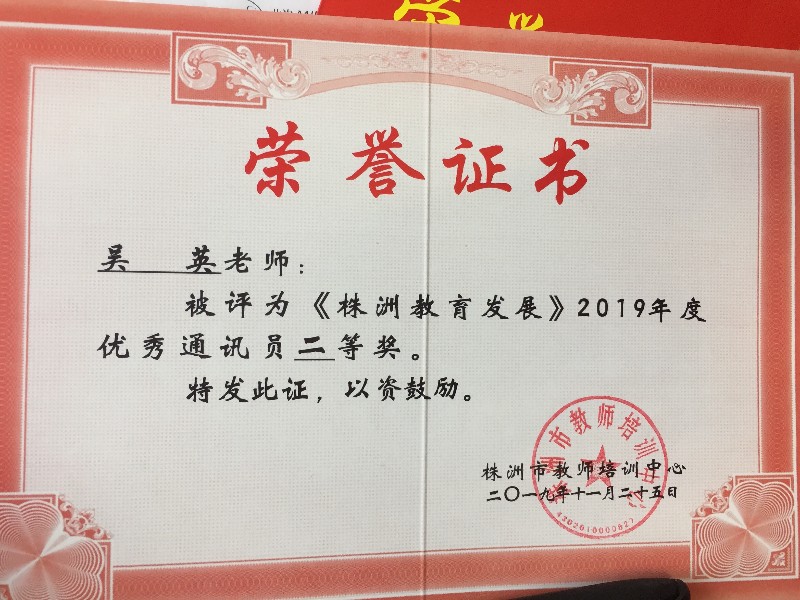 荣誉证书
吴 英老师：
被评为《株洲教育发展》2019年度
优秀通讯员二等奖。
特发此证，以资鼓励。
株洲市教师培训中心
二〇一九年十一月二十五日
株洲市教师培训中心